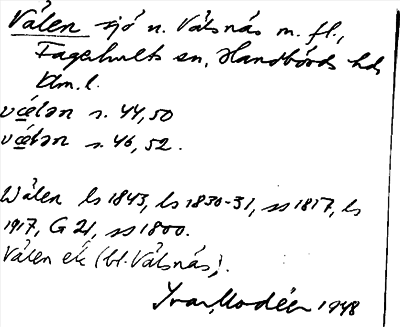 Välen sjö n. Välsnäs m. fl.,
Fagerhults sn, Handbörds hd
Klm. l.
væ̀lən s. 44,50
væ̀lən s. 46, 52.
Wälen ls 1843, ls 1830-31, ss 1817, ls
1917, G 21, ss 1800.
Välen ek (bl. Välsnäs).
Ivar Modéer 1948